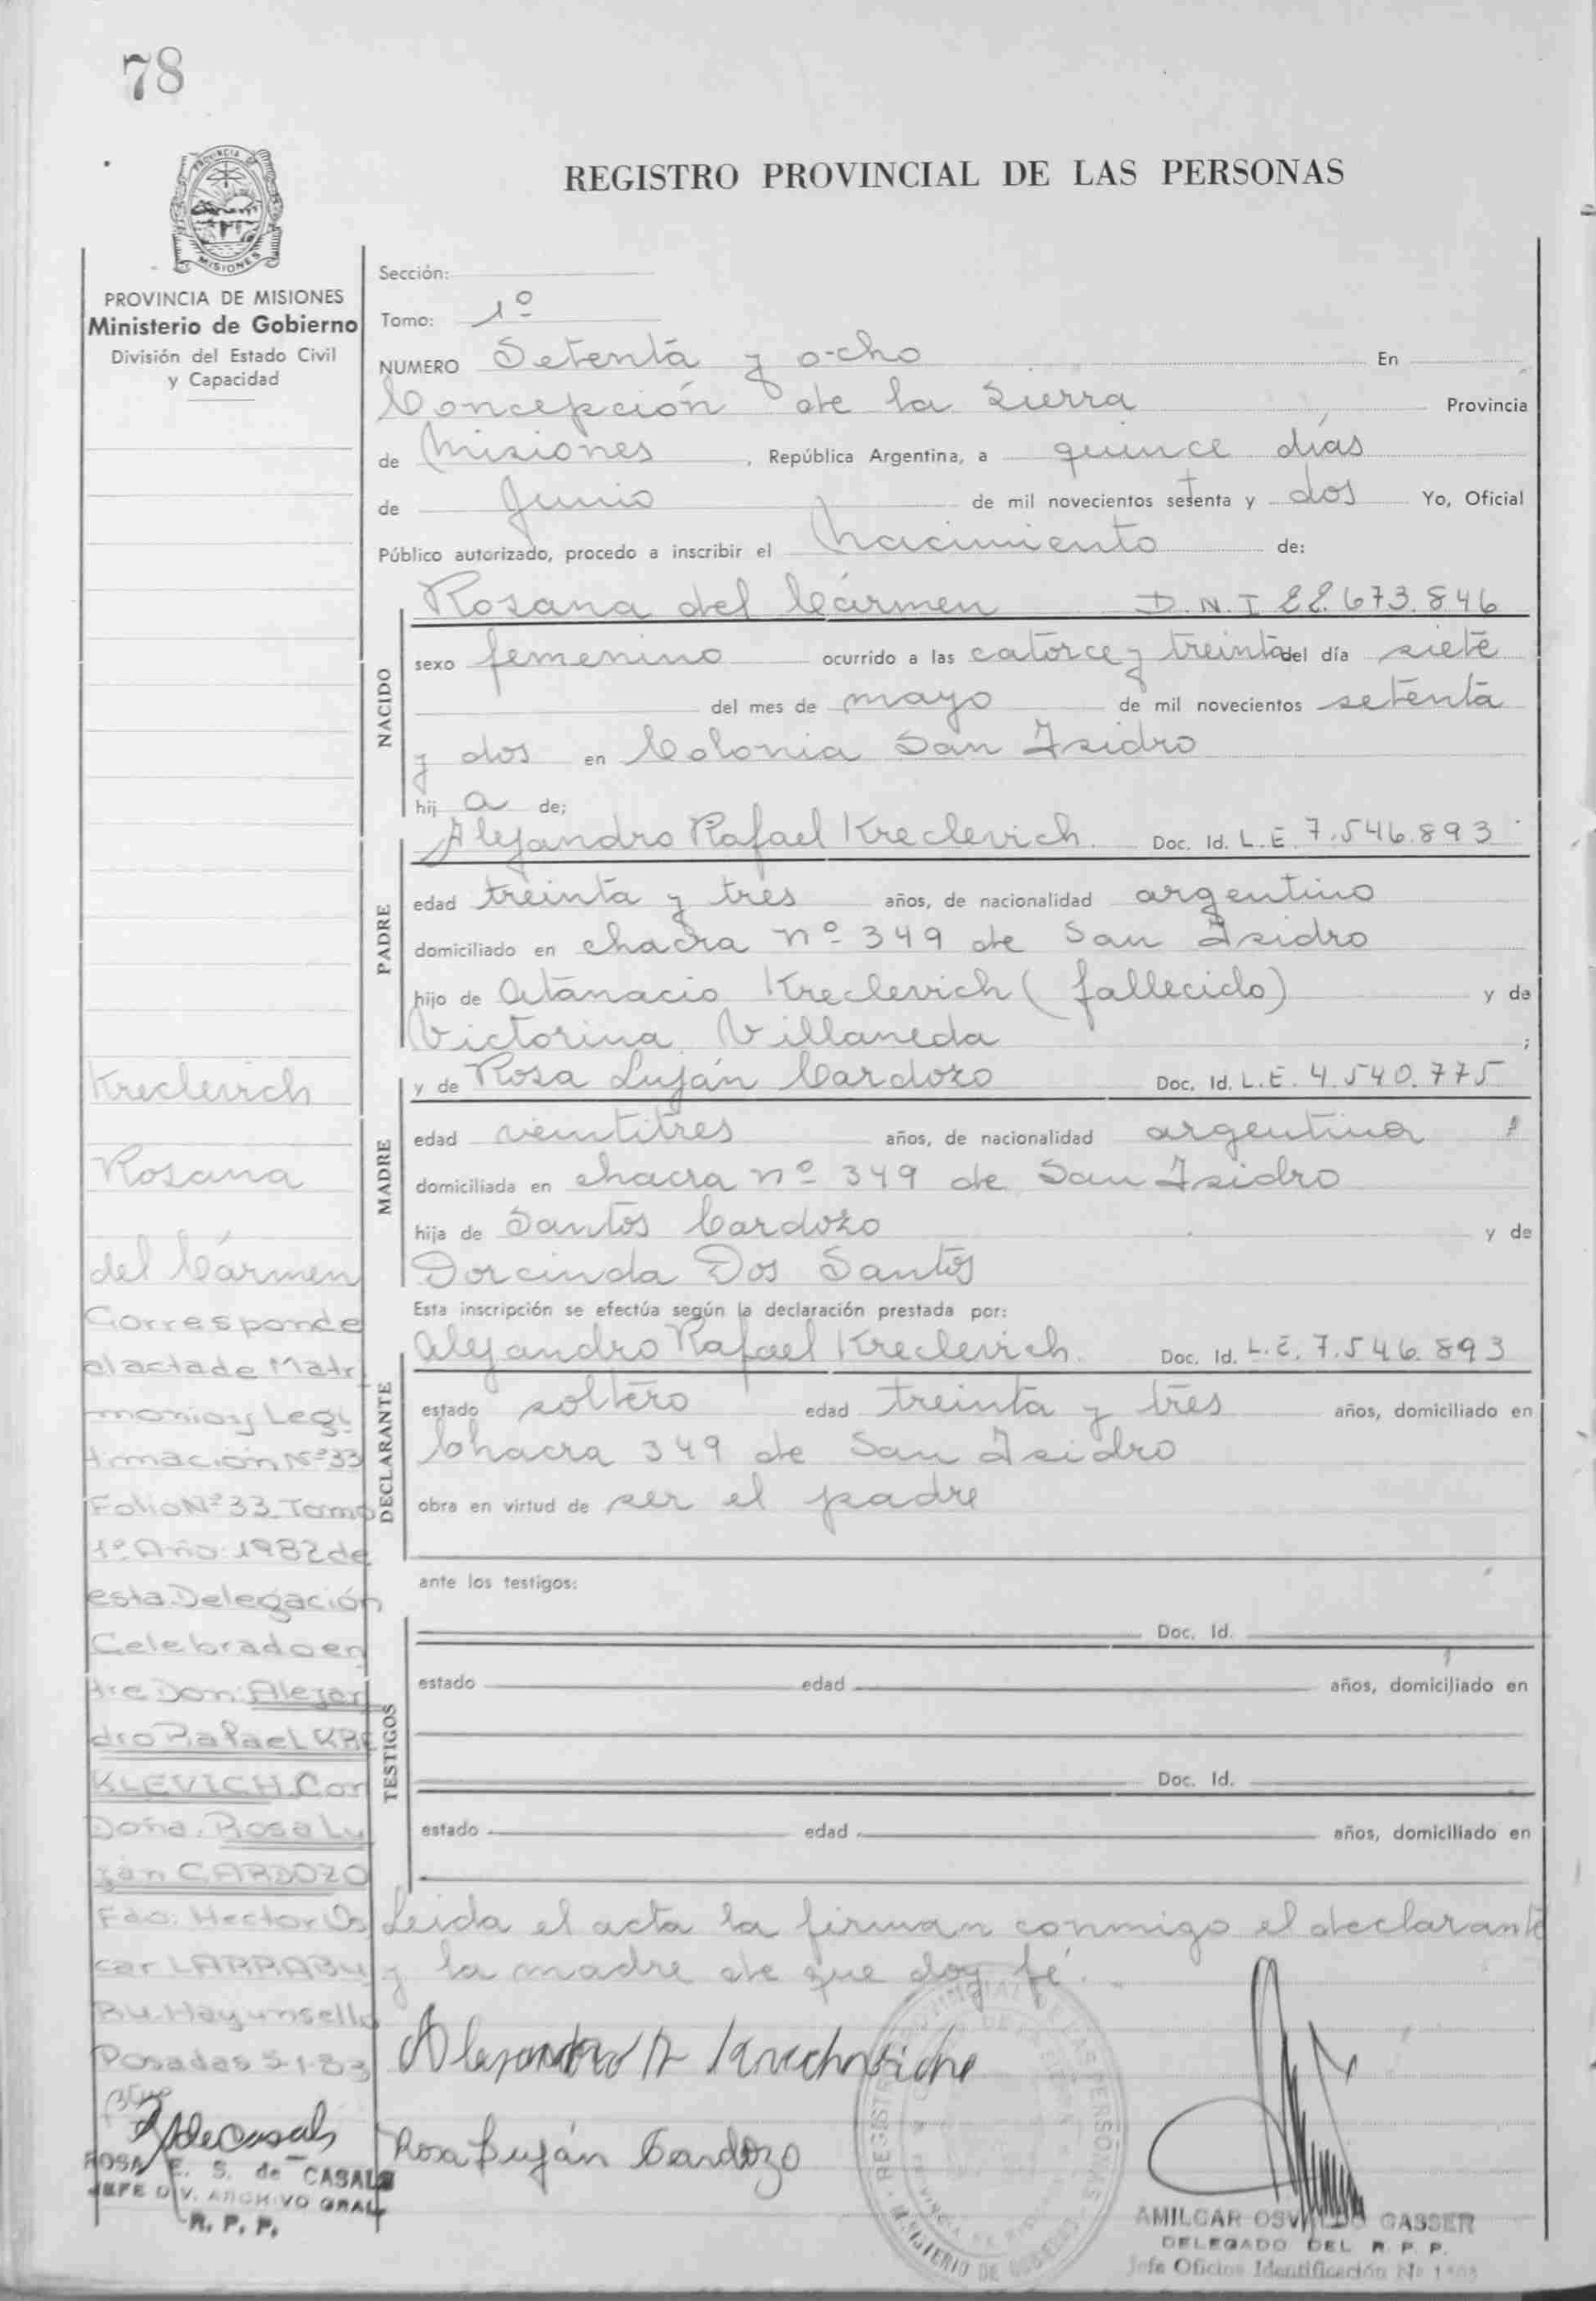 78
REGISTRO PROVINCIAL DE LAS PERSONAS
PROVINCIA
MISIONES
PROVINCIA DE MISIONES
Ministerio de Gobierno
División del Estado Civil
y Capacidad
Sección:
Tomo: 1º
NUMERO Setenta y ocho En
Concepción de la Sierra Provincia
de Misiones, República Argentina, a quince días
de Junio de mil novecientos setenta y dos Yo, Oficial
Público autorizado, procedo a inscribir el Nacimiento de:
NACIDO
Rosana del Cármen D.N.I 22.673.846
sexo femenino ocurrido a las catorce y treinta del día siete
del mes de mayo de mil novecientos setenta
y dos en Colonia San Isidro
hij a de;
PADRE
Alejandro Rafael Kreclevich. Doc. Id. L.E. 7.546.893
edad treinta y tres años, de nacionalidad argentino
domiciliado en chacra nº 349 de San Isidro
hijo de Atanacio Kreclevich (fallecido) y de
Victorina Villaneda ;
MADRE
y de Rosa Luján Cardozo Doc. Id. L.E. 4.540.775
edad veintitres años, de nacionalidad argentina
domiciliada en chacra nº 349 de San Isidro
hija de Santos Cardozo y de
Dorcinda Dos Santos
Esta inscripción se efectúa según la declaración prestada por:
DECLARANTE
Alejandro Rafael Kreclevich. Doc. Id. L.E. 7.546.893
estado soltero edad treinta y tres años, domiciliado en
Chacra 349 de San Isidro
obra en virtud de ser el padre
ante los testigos:
TESTIGOS
Doc. Id.
estado edad años, domiciliado en
Doc. Id.
estado edad años, domiciliado en
Leida el acta la firman conmigo el declarante
y la madre de que doy fé.
Rosa Luján Cardozo
AMILCAR OSVALDO GASSER
DELEGADO DEL R. P. P.
Jefe Oficina Identificación Nº
Kreclevich
Rosana
del Cármen
Corresponde
al acta de Matri
monio y Legi
timación Nº33
Folio Nº33. Tomo
1º Año 1982 de
esta Delegación
Celebrado en
tre Don: Alejan
dro Rafael KRE
KLEVICH. Con
Doña. Rosa Lu
ján CARDOZO
Fdo: Hector Os
car LARRABU
RU. Hay un sello
Posadas 5-1-83
ROSA E. S. de CASALS
JEFE DIV. ARCHIVO GRAL
R. P. P.